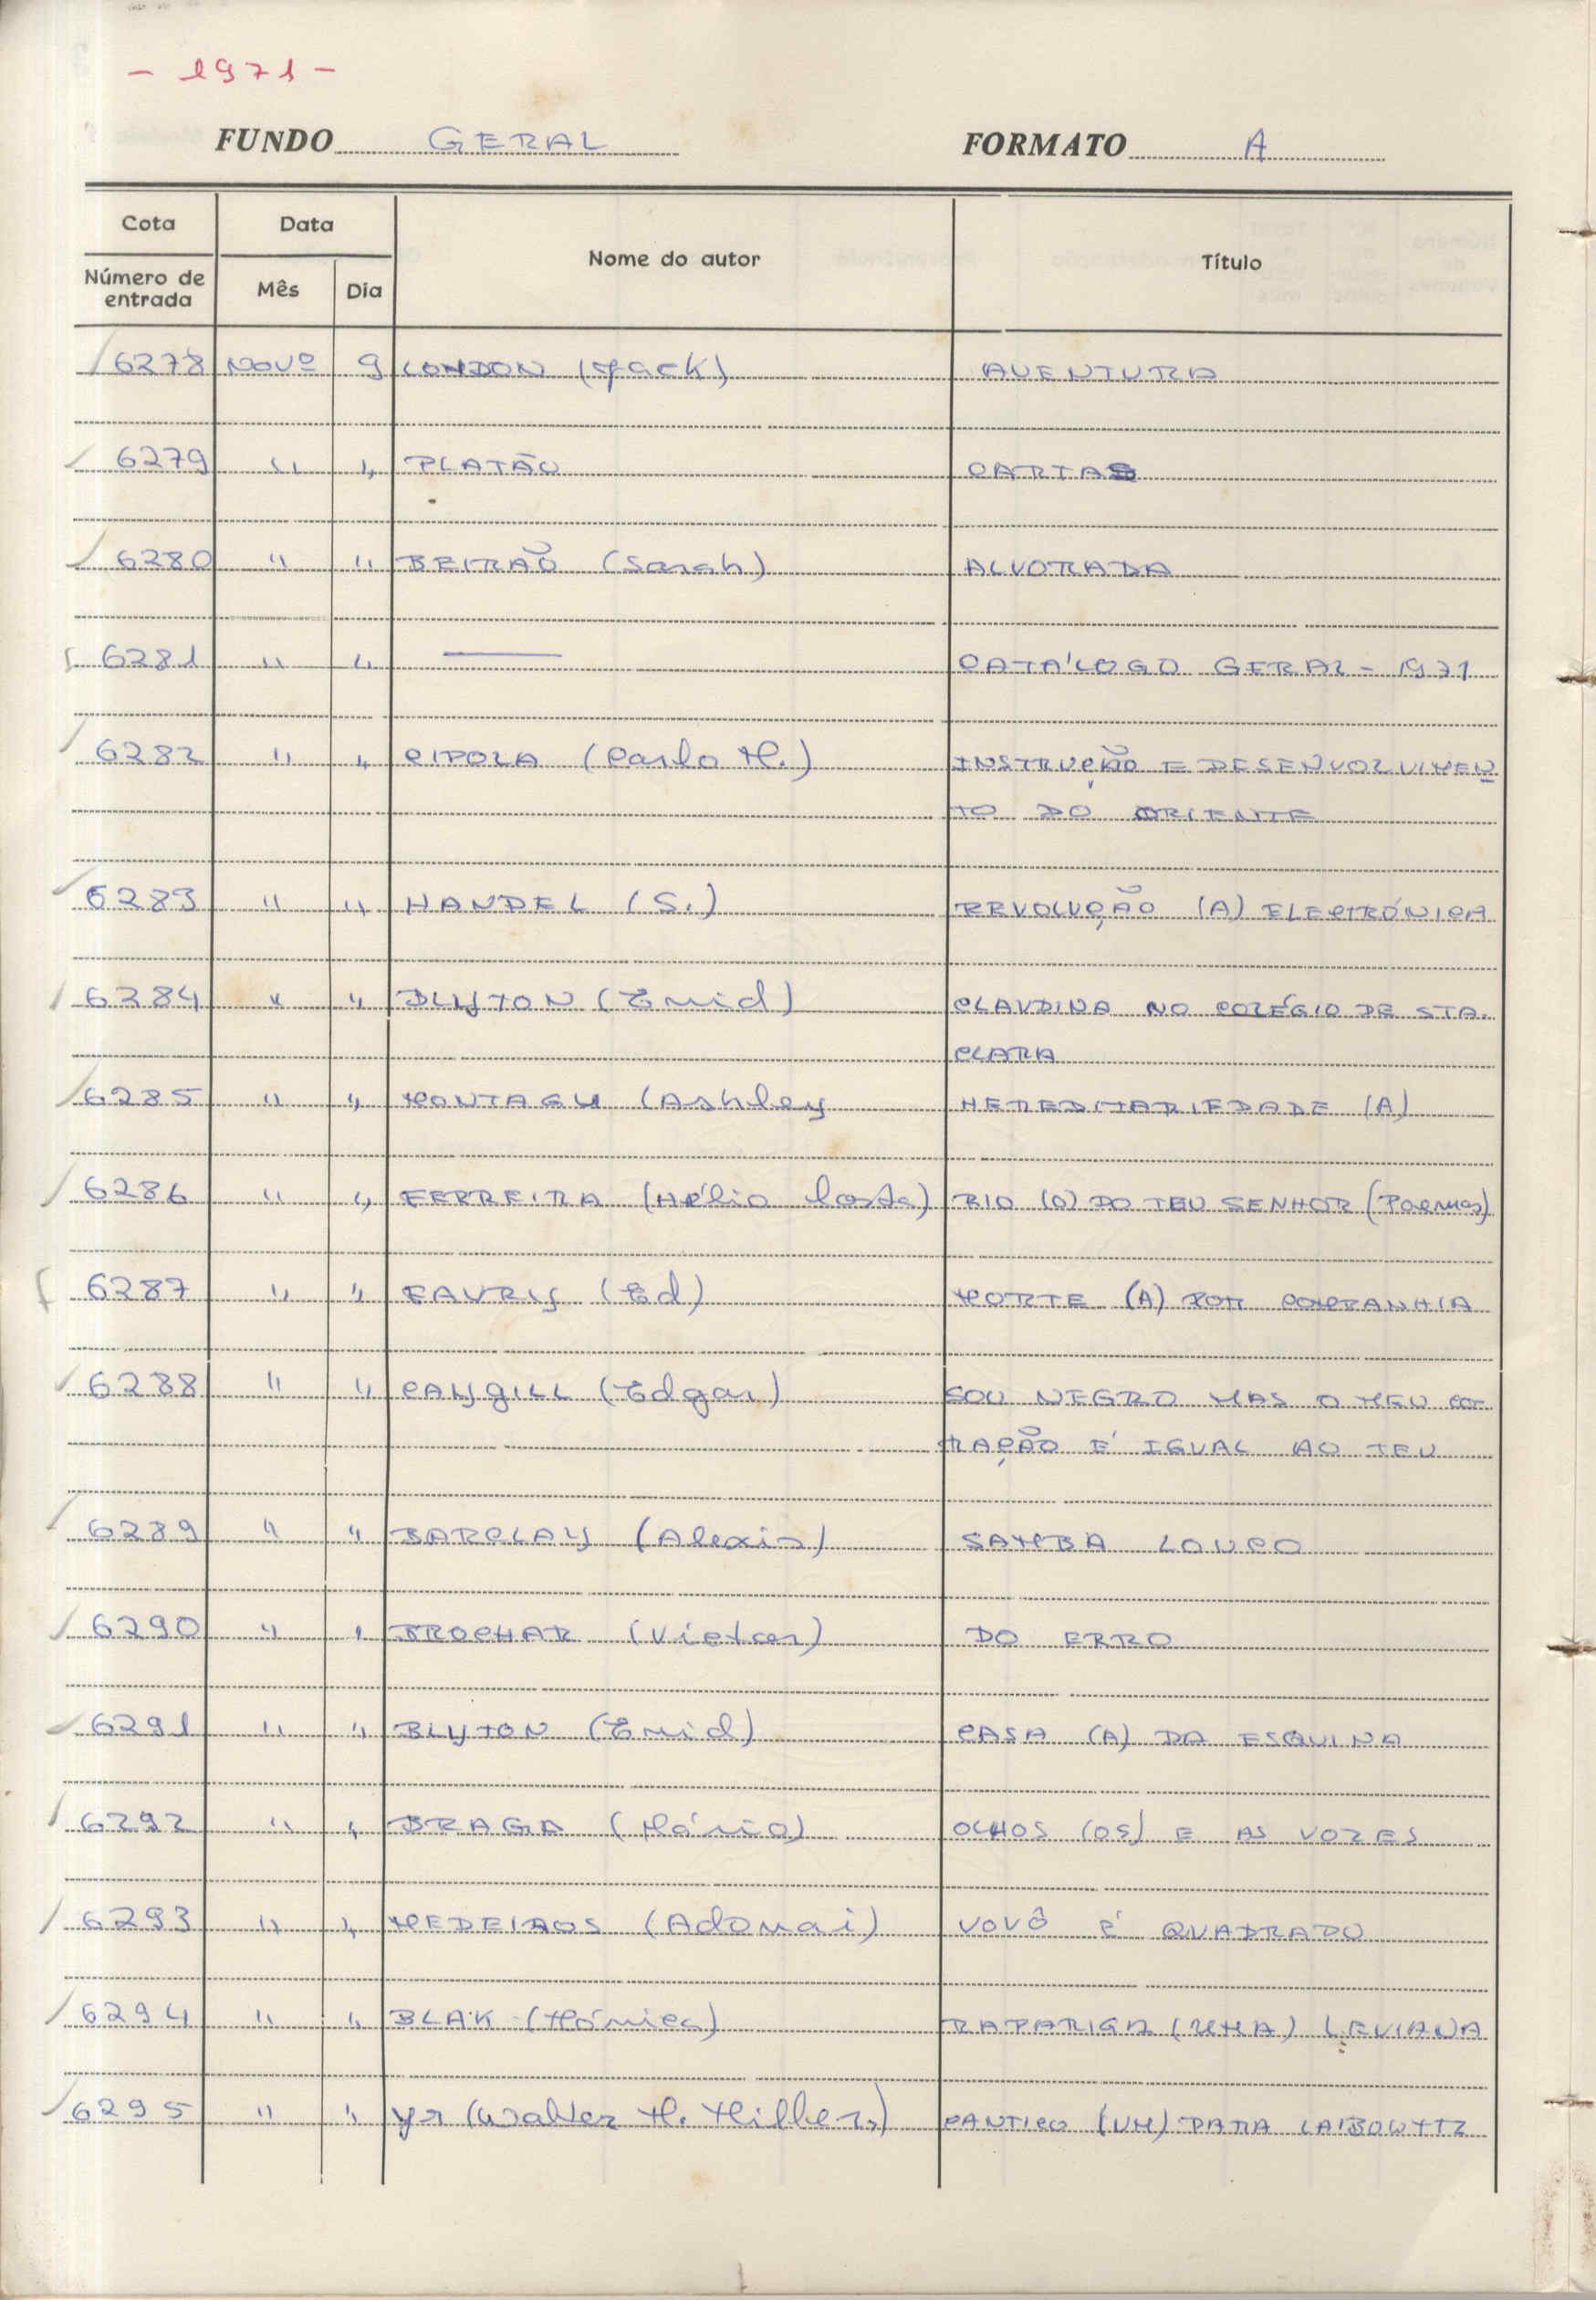 - 1971 -
FUNDO GERAL FORMATO A
Cota Data Nome do autor Título
Número de entrada Mês Dia
6278 NOVº 9 LONDON (Jack) AVENTURA
6279 " " PLATÃO CARTAS
6280 " " BEIRÃO (Sarah) ALVORADA
6281 " " —— CATÁLOGO GERAL - 1971
6282 " " CIPOLA (Carlo M.) INSTRUÇÃO E DESENVOLVIMEN
TO DO ORIENTE
6283 " " HANDEL (S.) REVOLUÇÃO (A) ELECTRÓNICA
6284 " " BLYTON (Enid) CLAUDINA NO COLÉGIO DE STA.
CLARA
6285 " " MONTAGU (Ashley HEREDITARIEDADE (A)
6286 " " FERREIRA (Hélio Costa) RIO (O) DO TEU SENHOR (Poemas)
6287 " " FAURIS (Ed) MORTE (A) POR COMPANHIA
6288 " " CAYGILL (Edgar) SOU NEGRO MAS O MEU CO-
RAÇÃO É IGUAL AO TEU
6289 " " BARCLAY (Alexis) SAMBA LOUCO
6290 " " BROCHAR (Victor) DO ERRO
6291 " " BLYTON (Enid) CASA (A) DA ESQUINA
6292 " " BRAGA (Mário) OLHOS (OS) E AS VOZES
6293 " " MEDEIROS (Adonai) VOVÔ É QUADRADO
6294 " " BLAK (Mónica) RAPARIGA (UMA) LEVIANA
6295 " " Yr (Walter M. Miller,) CANTICO (UM) PARA LAIBOWITZ